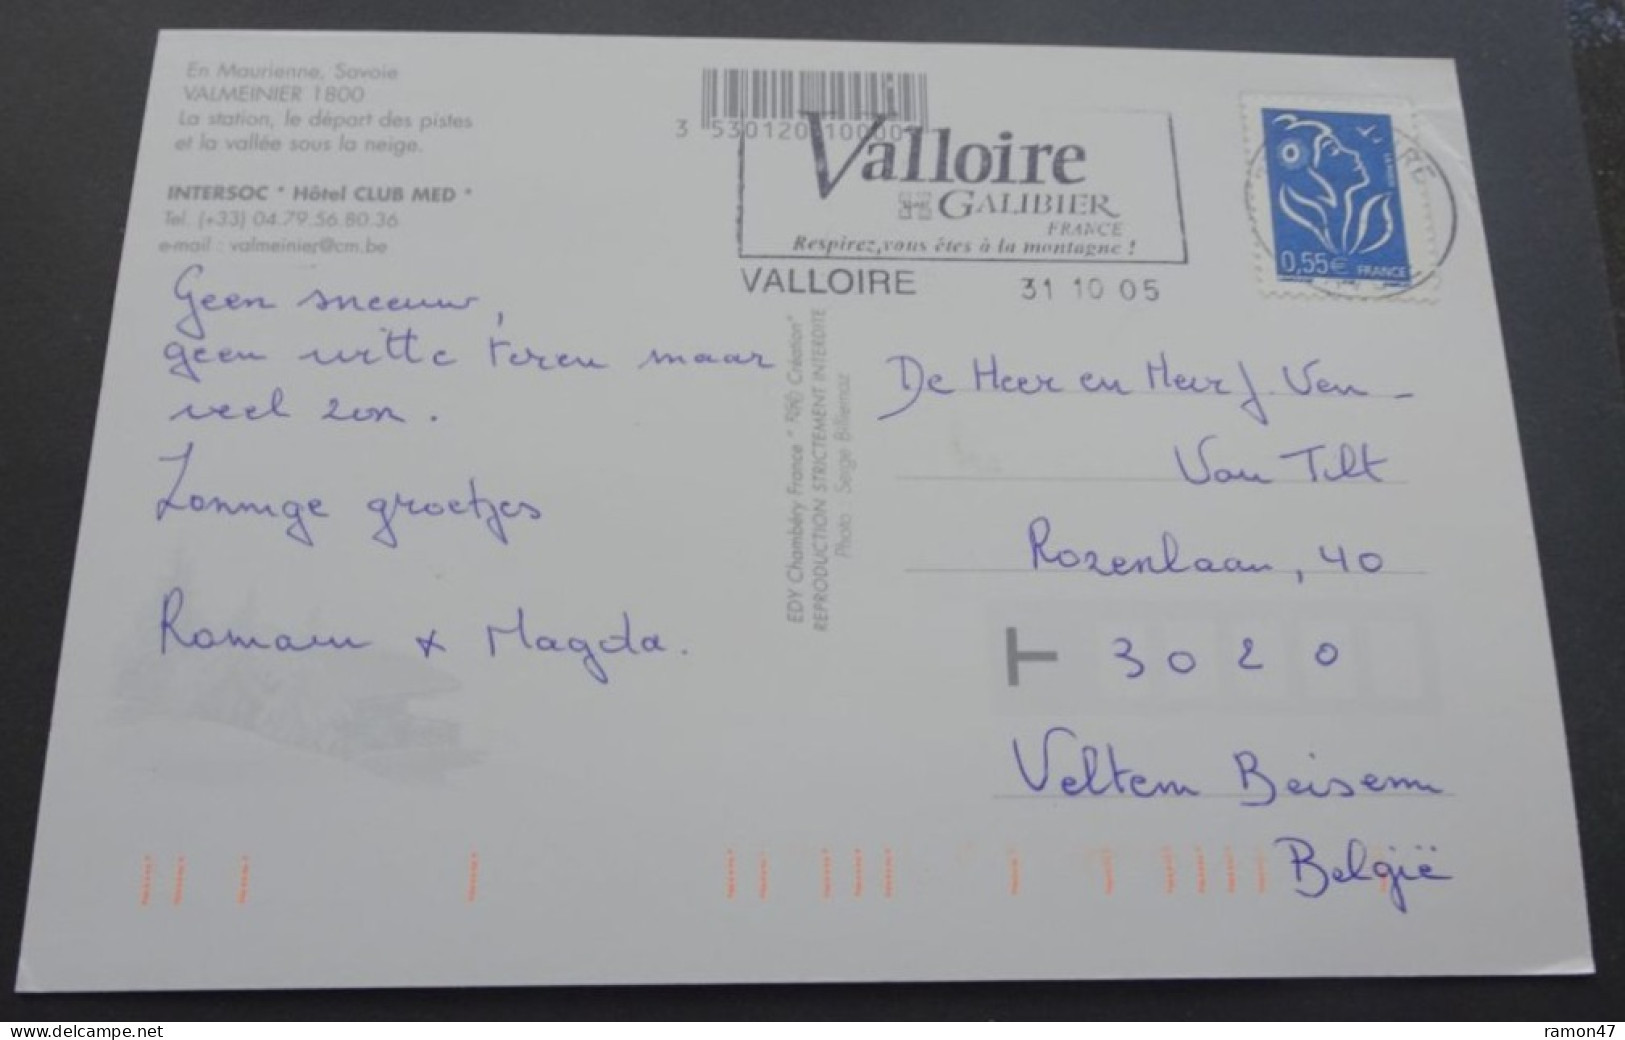 En Maurienne, Savoie
VALMEINIER 1800
La station, le départ des pistes
et la vallée sous la neige.
INTERSOC * Hôtel CLUB MED *
Tel. (+33) 04.79.56.80.36
e-mail : valmeinier@cm.be
Geen sneeuw,
geen witte toren maar
veel zon.
Zonnige groetjes
Romain & Magda.
3 530120 100001
Valloire
GALIBIER
FRANCE
Respirez, vous êtes à la montagne !
VALLOIRE 31 10 05
0,55€ FRANCE
EDY Chambéry France * Création"
REPRODUCTION STRICTEMENT INTERDITE
Photo Serge Billiemaz
De Heer en Mevr J. Ven -
Van Tilt
Rozenlaan, 40
3020
Veltem Beisem
België
www.delcampe.net
ramon47